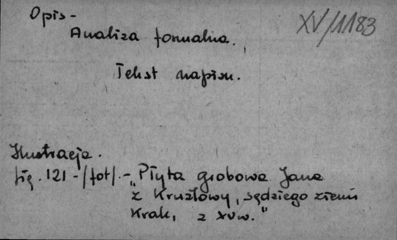 Opis -
XV/1183
Analiza formalna.
Tekst napisu.
Ilustracja.
fig. 121 -/fot/. - "Płyta grobowa Jana
z Kruzłowy, sędziego ziemi
Krak, z XV w."